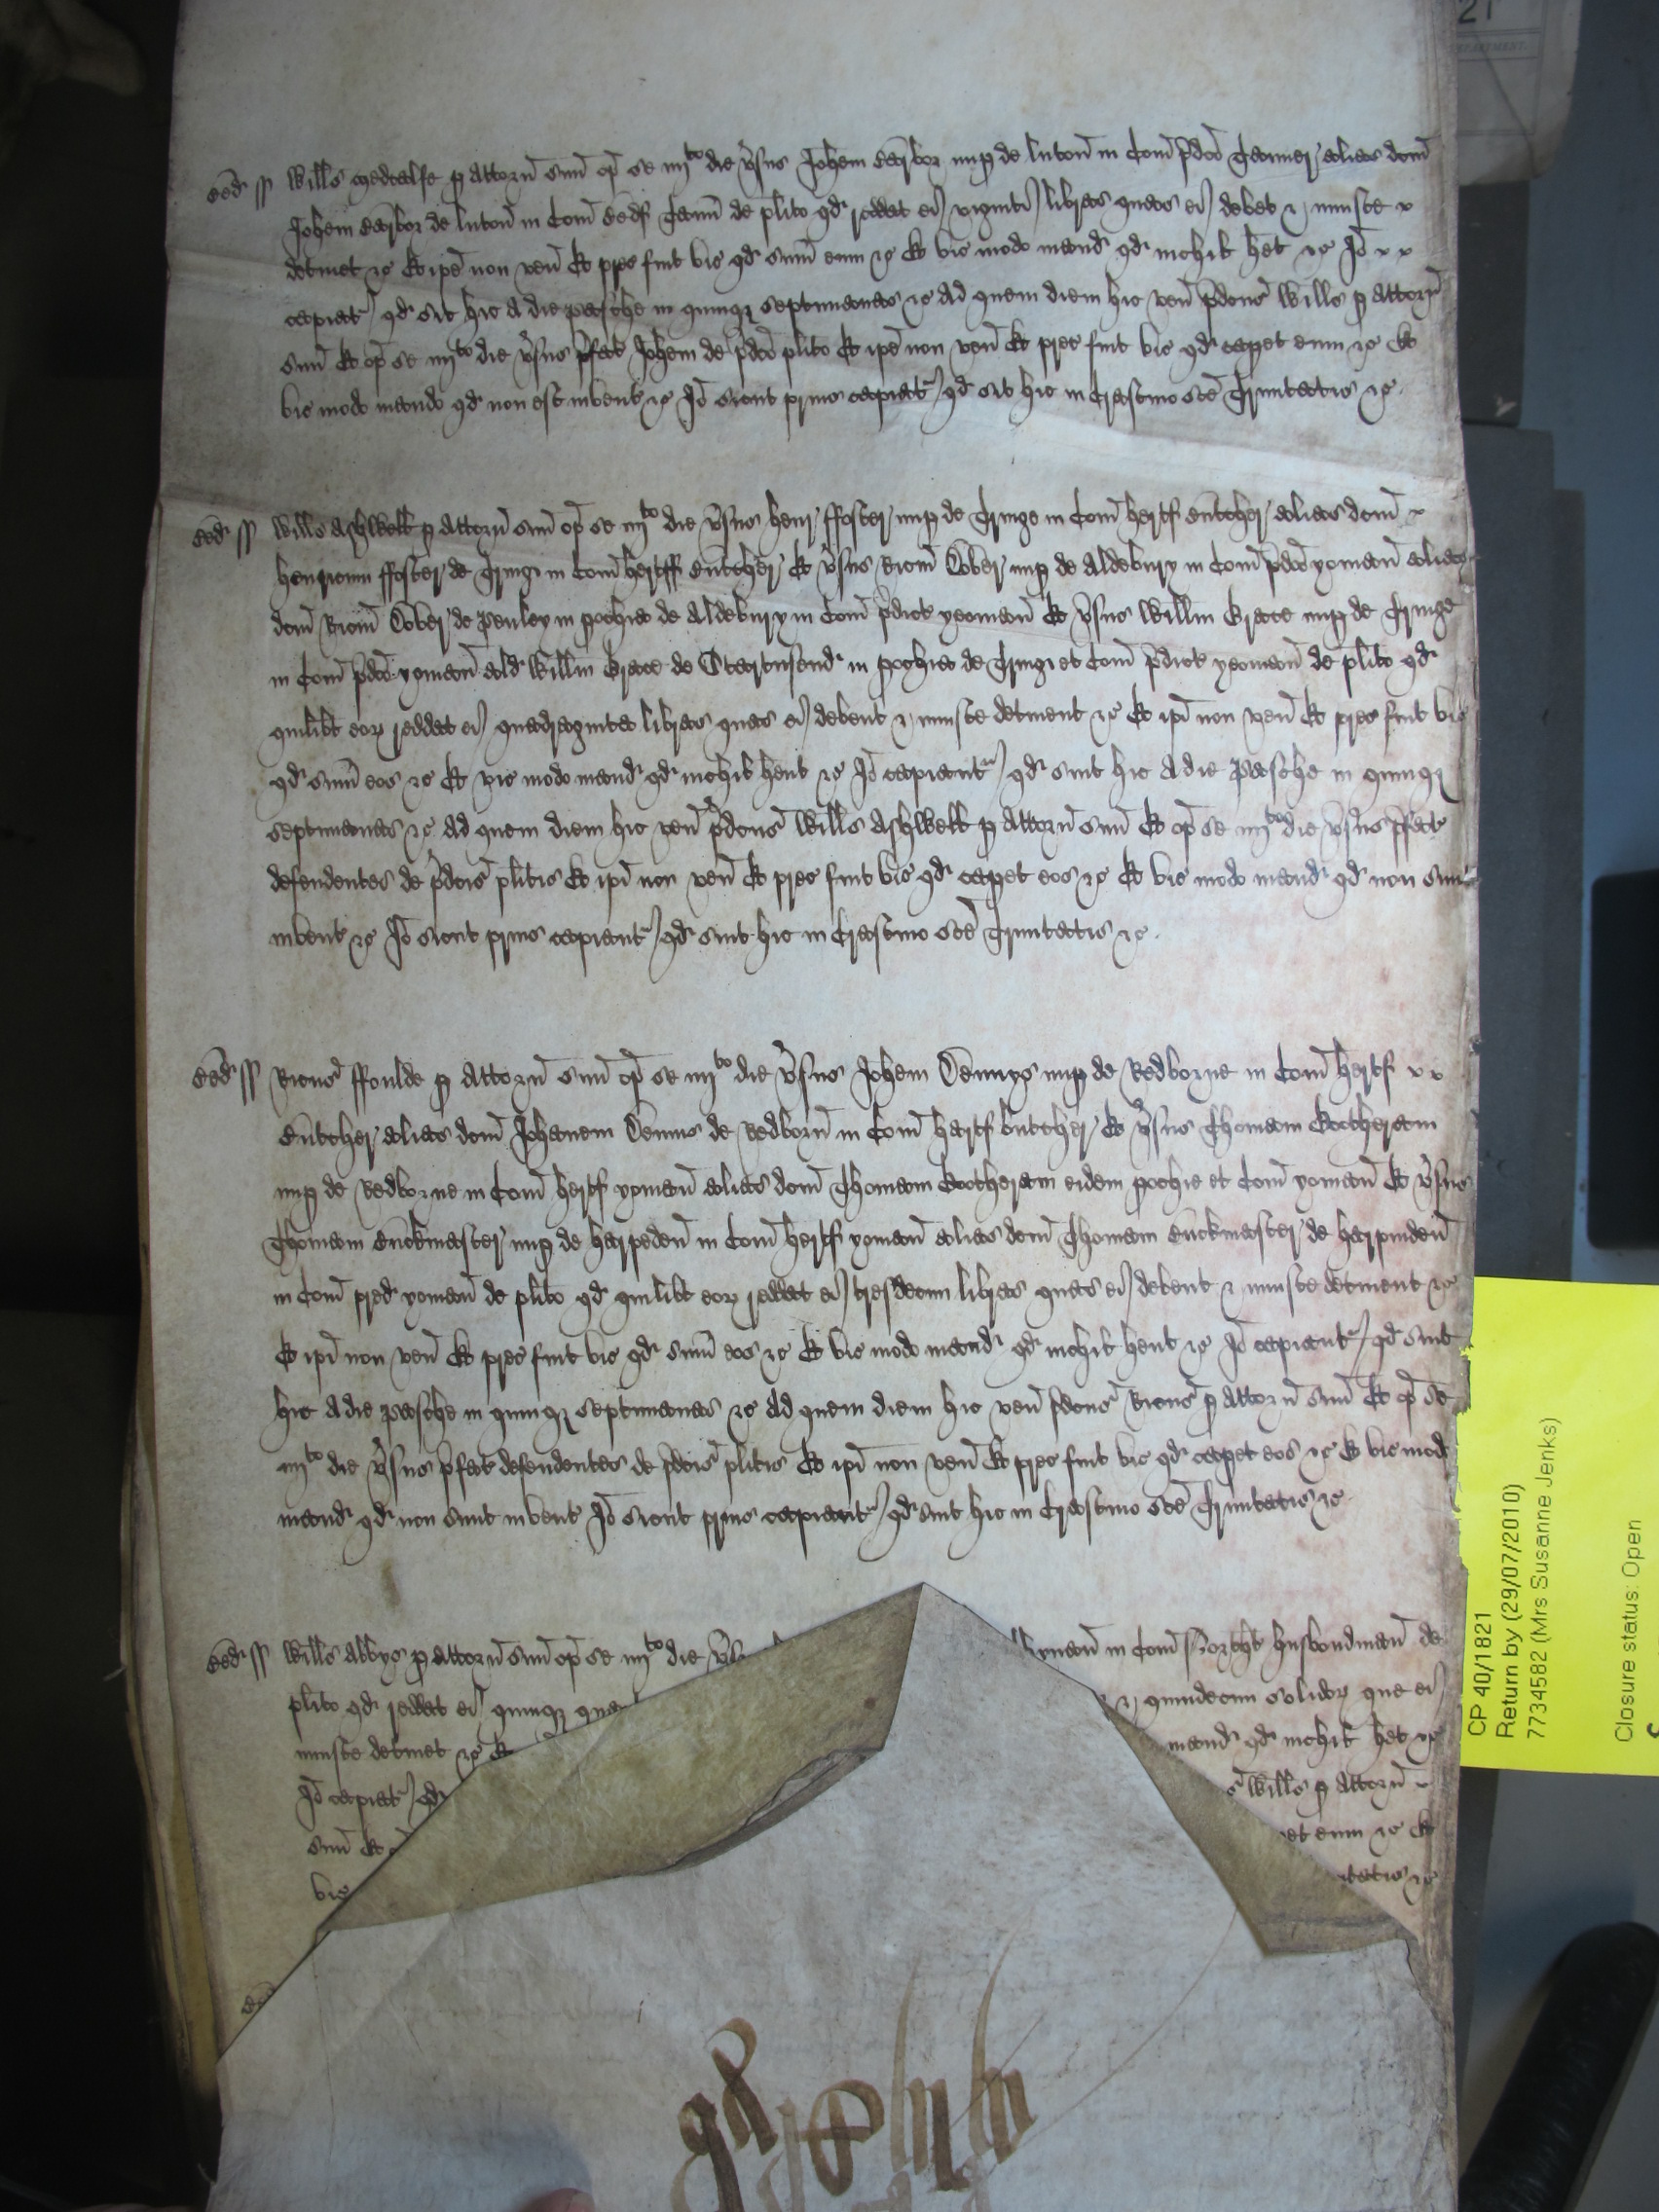 21
DEPARTMENT.
Bed' ss Willms Medcalfe p attorn suu op se iiijto die vsus Johem Barbor nup de Luton in Com pdco Tanner alias dcm
Johem Barbor de Luton in Com Bedf Tann de plito qd reddat ei viginti libras quas ei debet & iniuste
detinet &c Et ipe non ven Et prec fuit vic qd sum eum &c Et vic modo mand qd nichil het &c Io
capiat qd sit hic a die pasche in quinq septimanas &c Ad quem diem hic ven pdcus Willms p attorn
suu Et op se iiijto die vsus pfat Johem de pdco plito Et ipe non ven Et prec fuit vic qd capet eum &c Et
vic modo mando qd non est invent &c Io sicut prius capiat qd sit hic in Crastino sce Trinitatis &c
Bed' ss Willms Ashwell p attorn suu op se iiijto die vsus Henr ffoster nup de Tringe in Com Hertf Butcher alias dcm
Henricum ffoster de Tring in Com Hertff Butcher Et vsus Ricm Dober nup de Aldebury in Com pdco yoman alias
dcm Ricm Dober de Penley in pochia de Aldebury in Com pdict yeoman Et vsus Willm Grace nup de Tringe
in Com pdco yoman alias Willm Grace de in pochia de Tring et Com pdict yeoman de plito qd
quilibt eor reddat ei quadraginta libras quas ei debent & iniuste detinent &c Et ipi non ven Et prec fuit vic
qd sum eos &c Et vic modo mand qd nichil hent &c Io capiant qd sint hic a die pasche in quinq
septimanas &c Ad quem diem hic ven pdcus Willms Ashwell p attorn suu Et op se iiijto die vsus pfat
defendentes de pdcis plitis Et ipi non ven Et prec fuit vic qd capet eos &c Et vic modo mand qd non sunt
invent &c Io sicut prius capiant qd sint hic in Crastino sce Trinitatis &c
Bed' ss Ricus ffoulde p attorn suu op se iiijto die vsus Johem Dennys nup de Redborne in Com Hertf
Butcher alias dcm Johanem Dennis de Redborn in Com Hertf butcher Et vsus Thomam
nup de Redborne in Com Hertf yoman alias dcm Thomam eidem pochie et Com yoman Et vsus
Thomam Buckmaster nup de Harpeden in Com Hertf yoman alias dcm Thomam Buckmaster de Harpinden
in Com pred yoman de plito qd quilibt eor reddat ei tresdecim libras quas ei debent & iniuste detinent &c
Et ipi non ven Et prec fuit vic qd sum eos &c Et vic modo mand qd nichil hent &c Io capiant qd sint
hic a die pasche in quinq septimanas &c Ad quem diem hic ven pdcus Ricus p attorn suu Et op se
iiijto die vsus pfat defendentes de pdcis plitis Et ipi non ven Et prec fuit vic qd capet eos &c Et vic mod
mand qd non sunt invent Io sicut prius capiant qd sint hic in Crastino sce Trinitatis &c
Bed' ss Willms Abbys p attorn suu op se iiijto die in Com husbondman de
plito qd reddat ei quinq & quindecim solidor que ei
iniuste detinet &c Et mand qd nichil het &c
Io capiat qd Willms p attorn
suu Et eum &c Et
vic &c
CP 40/1821
Return by (29/07/2010)
7734582 (Mrs Susanne Jenks)
Closure status: Open